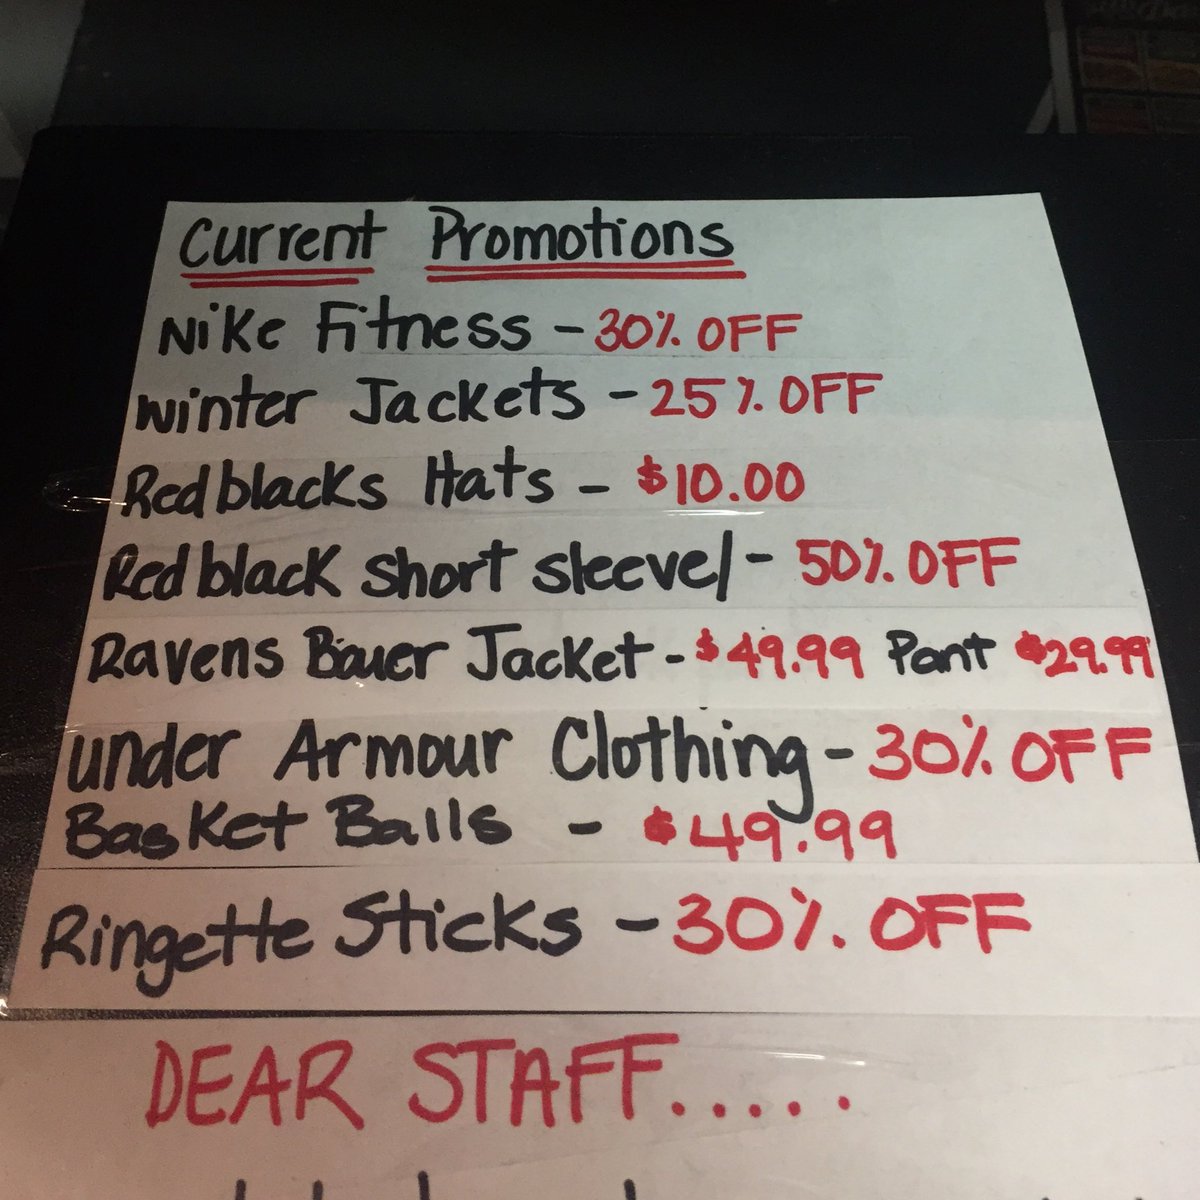 Current Promotions
Nike Fitness - 30% OFF
winter Jackets - 25% OFF
Redblacks Hats - $10.00
Redblack short sleeve/ - 50% OFF
Ravens Bauer Jacket - $49.99 Pant $29.99
under Armour Clothing - 30% OFF
Basket Balls - $49.99
Ringette Sticks - 30% OFF
DEAR STAFF.....